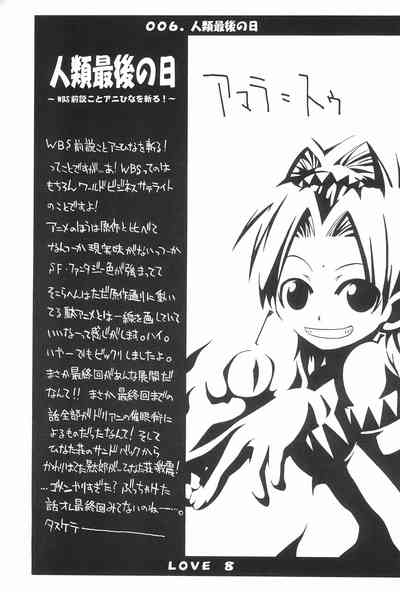 006. 人類最後の日
人類最後の日
～WBS前説ことアニひなを斬る！～
アマラ＝スゥ
WBS前説ことアニひなを斬る！
ってことですが…あ！WBSってのは
もちろんワールドビジネスサテライト
のことですよ！
アニメのほうは原作と比べて
なんつーか現実味がないっつーか
SF・ファンタジー色が強まってて
そこらへんはただ原作通りに動いて
る駄アメとは一線を画していて
いいなーって感じがします。ハイ。
いやーでもビックリしましたよ。
まさか最終回があんな展開だ
なんて!! まさか最終回までの
話全部がドリアンの催眠術に
よるものだったなんて！そして
ひなた荘のサンドバックから
かわりはてた景太郎が…ひなた荘激震！
…ゴメンやりすぎた？ぶっちゃけた
話オレ最終回みてないのねー…。
タスケテ―
LOVE 8